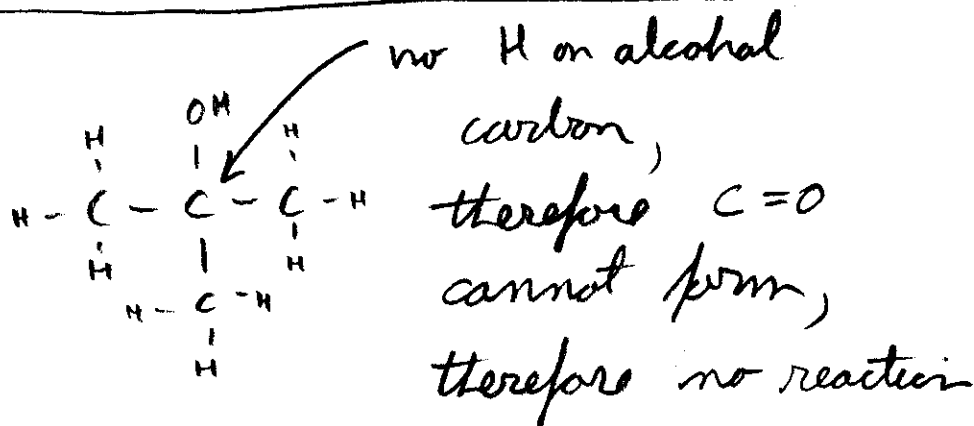 no H on alcohol
carbon,
therefore C=O
cannot form,
therefore no reaction
OH
H H
H - C - C - C - H
H H
H - C - H
H